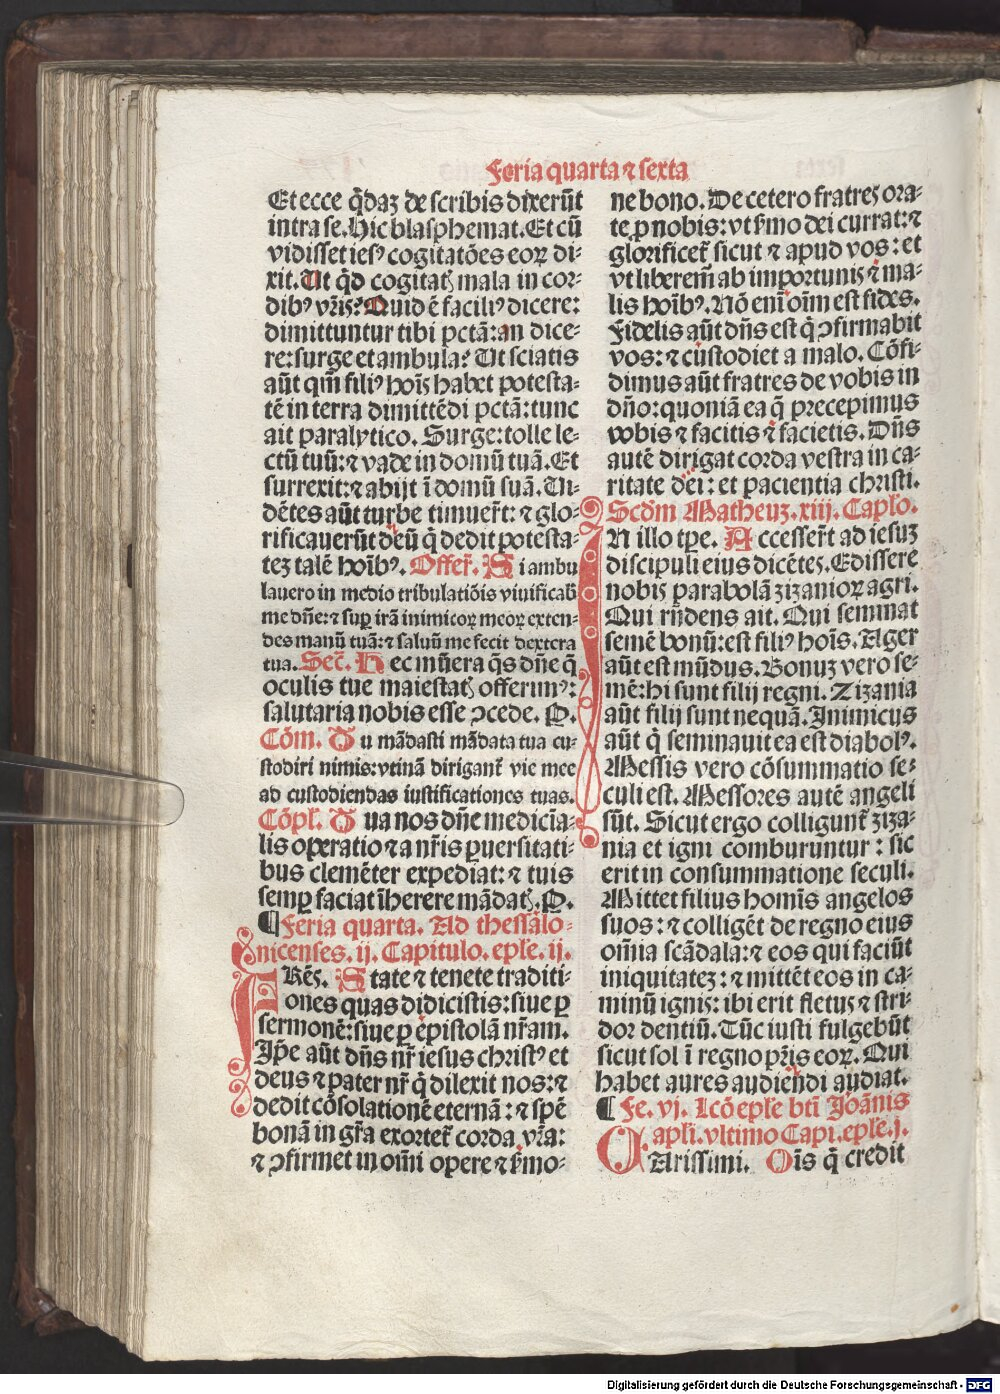 Feria quarta ⁊ sexta
Et ecce q̄daꝫ de scribis dixerūt
intra se. Hic blasphemat. Et cū
vidisset iesꝰ cogitatōes eoꝝ di-
xit. Ut qͥd cogitatꝭ mala in cor-
dibꝰ vr̄is? Quid ē faciliꝰ dicere:
dimittuntur tibi pctā: an dice-
re: surge et ambula? Ut sciatis
aūt qm̄ filiꝰ hoīs habet potesta-
tē in terra dimittēdi pctā: tunc
ait paralytico. Surge: tolle le-
ctū tuū: ⁊ vade in domū tuā. Et
surrexit: ⁊ abijt ī domū suā. Ui-
dētes aūt turbe timuer̄t: ⁊ glo-
rificauerūt deū q̄ dedit potesta-
teꝫ talē hoībꝰ. Offer̄. Si ambu
lauero in medio tribulatiōis viuificab̄
me dn̄e: ⁊ suꝑ irā inimicoꝝ meoꝝ exten-
des manū tuā: ⁊ saluū me fecit dextera
tua. Sec̄. Hec mūera q̄s dn̄e q̄
oculis tue maiestatꝭ offerimꝰ:
salutaria nobis esse ꝯcede. P.
Cōm. Tu mādasti mādata tua cu-
stodiri nimis: vtinā dirigant̄ vie mee
ad custodiendas iustificationes tuas.
Cōpl̄. Tua nos dn̄e medicīa-
lis operatio ⁊ a nr̄is ꝑuersitati-
bus clemēter expediat: ⁊ tuis
semꝑ faciat īherere mādatꝭ. P.
¶ Feria quarta. Ad thessalo-
nicenses. ij. Capitulo. epl̄e. ij.
FRēs. State ⁊ tenete traditi-
ones quas didicistis: siue ꝑ
sermonē: siue ꝑ epistolā nr̄am.
Ip̄e aūt dn̄s nr̄ iesus christꝰ et
deus ⁊ pater nr̄ q̄ dilexit nos: ⁊
dedit cōsolationē eternā: ⁊ spē
bonā in gr̄a exortet̄ corda vr̄a:
⁊ ꝯfirmet in oīni opere ⁊ ẜmo-
ne bono. De cetero fratres ora-
te ꝓ nobis: vt ẜmo dei currat: ⁊
glorificet̄ sicut ⁊ apud vos: et
vt liberem̄ ab importunis ⁊ ma-
lis hoībꝰ. Nō enī oīm est fides.
Fidelis aūt dn̄s est q̄ ꝯfirmabit
vos: ⁊ custodiet a malo. Cōfi-
dimus aūt fratres de vobis in
dn̄o: quoniā ea q̄ precepimus
vobis ⁊ facitis ⁊ facietis. Dn̄s
autē dirigat corda vestra in ca-
ritate dei: et pacientia christi.
Scd̄m Matheuꝫ. xiij. Caplo.
IN illo tp̄e. Accesser̄t ad iesuꝫ
discipuli eius dicētes. Edissere
nobis parabolā zizanioꝝ agri.
Qui rn̄dens ait. Qui seminat
semē bonū: est filiꝰ hoīs. Ager
aūt est mūdus. Bonuꝫ vero se-
mē: hi sunt filij regni. Zizania
aūt filij sunt nequā. Inimicus
aūt q̄ seminauit ea est diabolꝰ.
Messis vero cōsummatio se-
culi est. Messores autē angeli
sūt. Sicut ergo colligunt̄ ziza-
nia et igni comburuntur: sic
erit in consummatione seculi.
Mittet filius hominis angelos
suos: ⁊ colligēt de regno eius
oīnia scādala: ⁊ eos qui faciūt
iniquitateꝫ: ⁊ mittēt eos in ca-
minū ignis: ibi erit fletus ⁊ stri-
dor dentiū. Tūc iusti fulgebūt
sicut sol ī regno pr̄is eoꝝ. Qui
habet aures audiendi audiat.
¶ Fe. vj. Lcō epl̄e bti Joānis
apl̄i. vltimo Capi. epl̄e. j.
CArissimi. Oīs q̄ credit
Digitalisierung gefördert durch die Deutsche Forschungsgemeinschaft - DFG